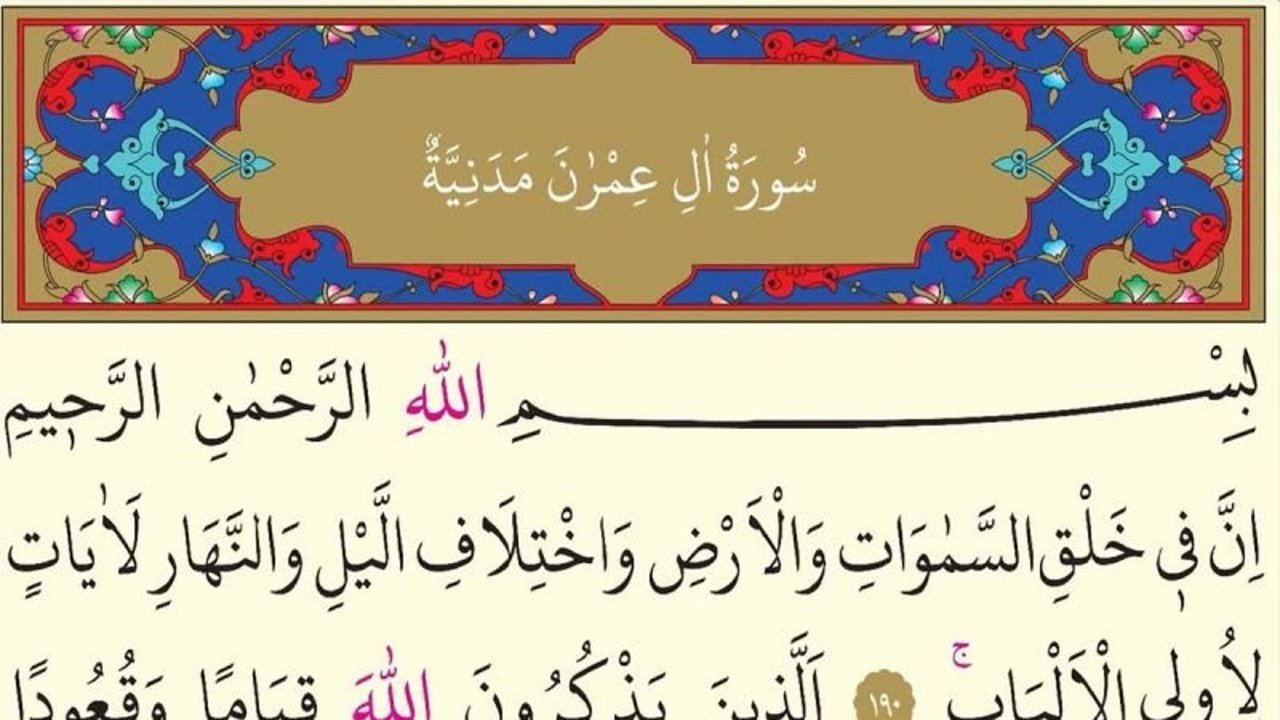 سُورَةُ اٰلِ عِمْرٰنَ مَدَنِيَّةٌ
بِسْمِ اللّٰهِ الرَّحْمٰنِ الرَّحٖيمِ
اِنَّ فٖى خَلْقِ السَّمٰوَاتِ وَالْاَرْضِ وَاخْتِلَافِ الَّيْلِ وَالنَّهَارِ لَاٰيَاتٍ
لِاُولِى الْاَلْبَابِ ۚ ﴿١٩٠﴾ اَلَّذٖينَ يَذْكُرُونَ اللّٰهَ قِيَامًا وَقُعُودًا